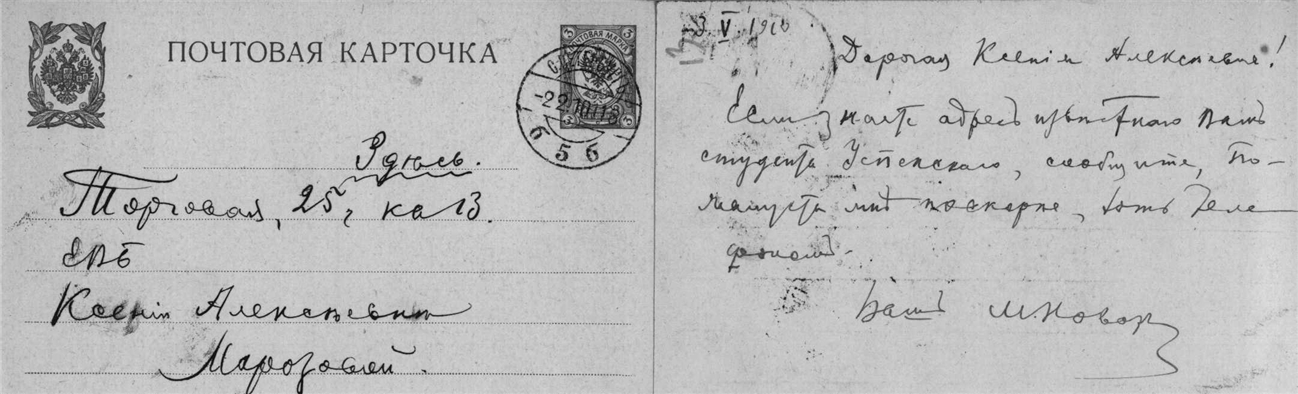 ПОЧТОВАЯ КАРТОЧКА
3
3
ПОЧТОВАЯ МАРКА
3
3
-2 2 10
б 5 б
Здѣсь.
Торговая, 25, кв 13.
ЕВБ
Ксеніи Алексѣевнѣ
Морозовой.
3 V 1910
Дорогая Ксенія Алексѣевна!
Если знаете адресъ извѣстнаго Вамъ
студента Успенскаго, сообщите, по-
жалуйста мнѣ поскорѣе, хоть теле
фономъ.
Вашъ